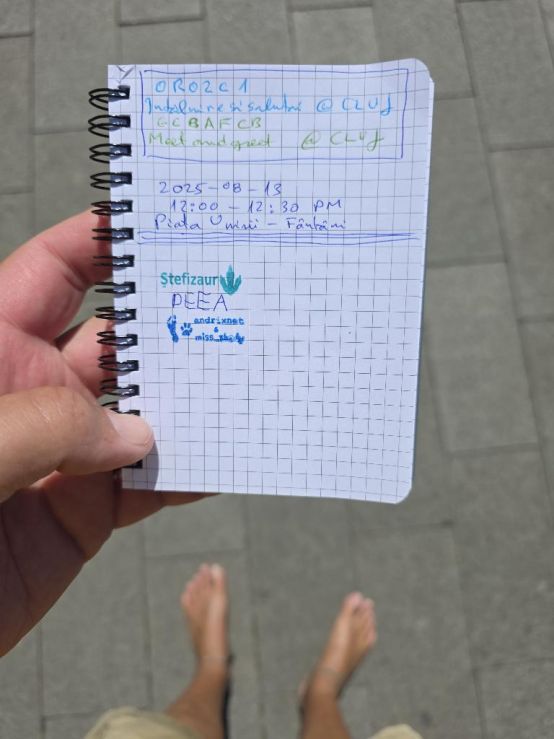 OR02C1
Întâlnire si salutări @ CLUJ
GCBAFCB
Meet and greet @ CLUJ
2025-08-13
12:00 - 12:30 PM
Piața Unirii - Fântâni
Ștefizaur
PEEA
andrixnet
&